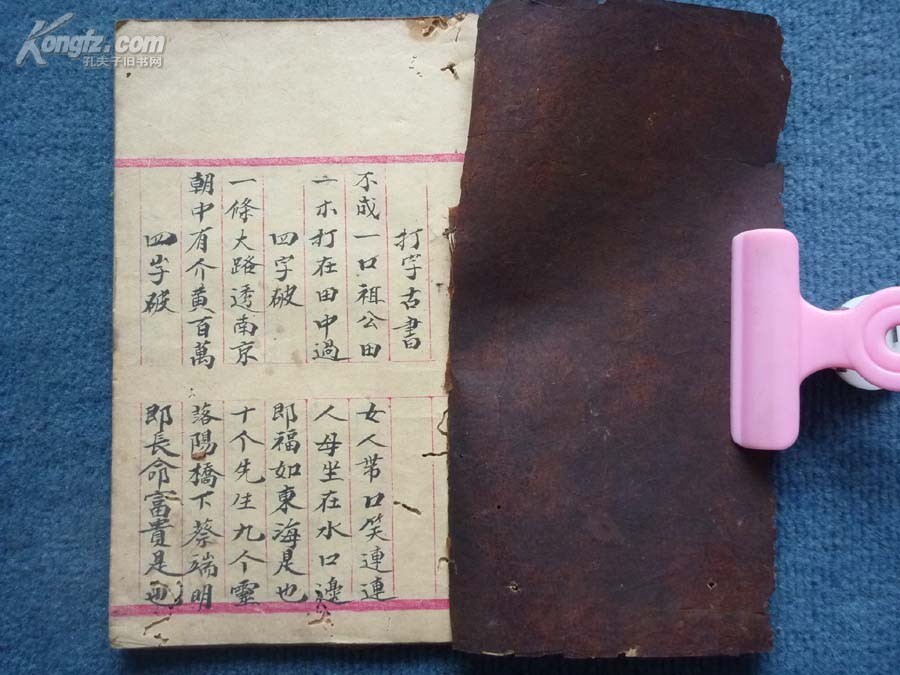 Kongfz.com
孔夫子旧书网
打字古書
不成一口祖公田 女人带口笑連連
一木打在田中過 人母坐在水口邊
四字破 郎福如東海是也
一條大路透南京 十个先生九个靈
朝中有介黄百萬 落陽橋下蔡端明
四字破 郎長命富貴是也